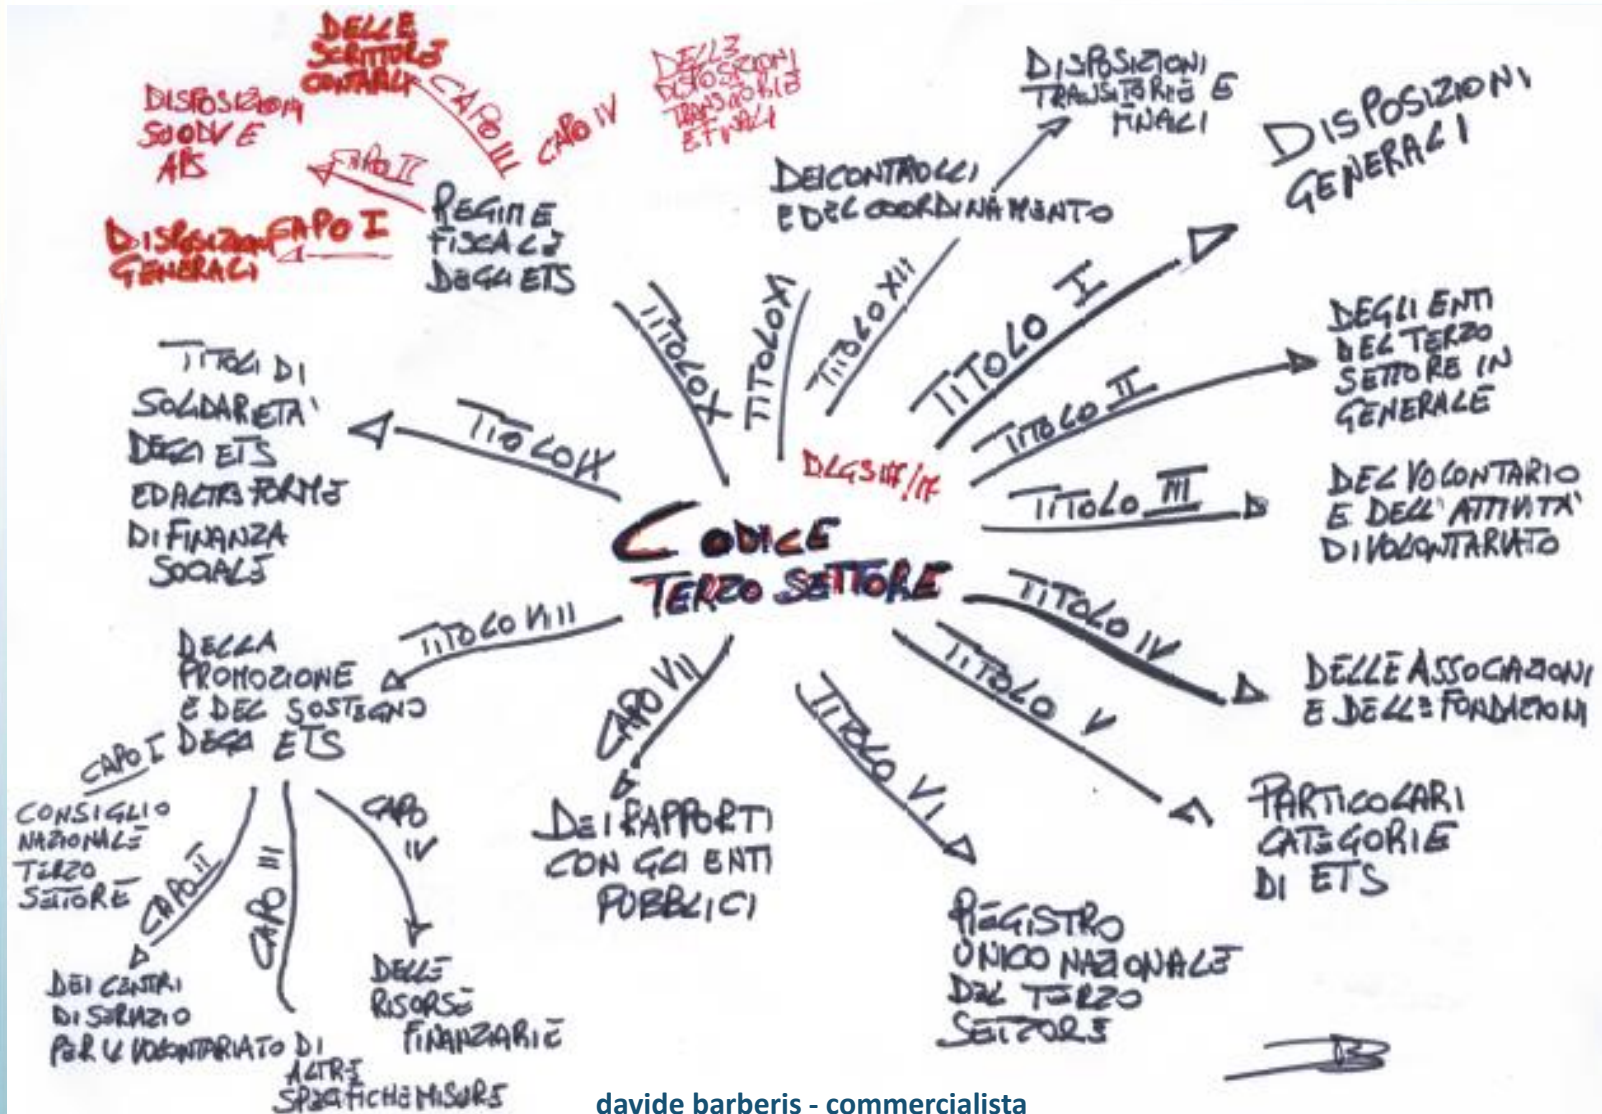 CODICE
TERZO SETTORE
DLGS 117/17
TITOLO I
DISPOSIZIONI
GENERALI
TITOLO II
DEGLI ENTI
DEL TERZO
SETTORE IN
GENERALE
TITOLO III
DEL VOLONTARIO
E DELL'ATTIVITA'
DI VOLONTARIATO
TITOLO IV
DELLE ASSOCIAZIONI
E DELLE FONDAZIONI
TITOLO V
PARTICOLARI
CATEGORIE
DI ETS
TITOLO VI
REGISTRO
UNICO NAZIONALE
DEL TERZO
SETTORE
CAPO VII
DEI RAPPORTI
CON GLI ENTI
PUBBLICI
TITOLO VIII
DELLA
PROMOZIONE
E DEL SOSTEGNO
DEGLI ETS
CAPO I
CONSIGLIO
NAZIONALE
TERZO
SETTORE
CAPO II
DEI CENTRI
DI SERVIZIO
PER IL VOLONTARIATO
CAPO III
DI
ALTRE
SPECIFICHE MISURE
CAPO IV
DELLE
RISORSE
FINANZIARIE
TITOLO IX
TITOLI DI
SOLIDARIETA'
DEGLI ETS
ED ALTRE FORME
DI FINANZA
SOCIALE
TITOLO X
REGIME
FISCALE
DEGLI ETS
CAPO I
DISPOSIZIONI
GENERALI
CAPO II
DISPOSIZIONI
SU ODV E
APS
CAPO III
DELLE
SCRITTURE
CONTABILI
CAPO IV
DELLE
DISPOSIZIONI
TRANSITORIE
E FINALI
TITOLO XI
DEI CONTROLLI
E DEL COORDINAMENTO
TITOLO XII
DISPOSIZIONI
TRANSITORIE E
FINALI
davide barberis - commercialista